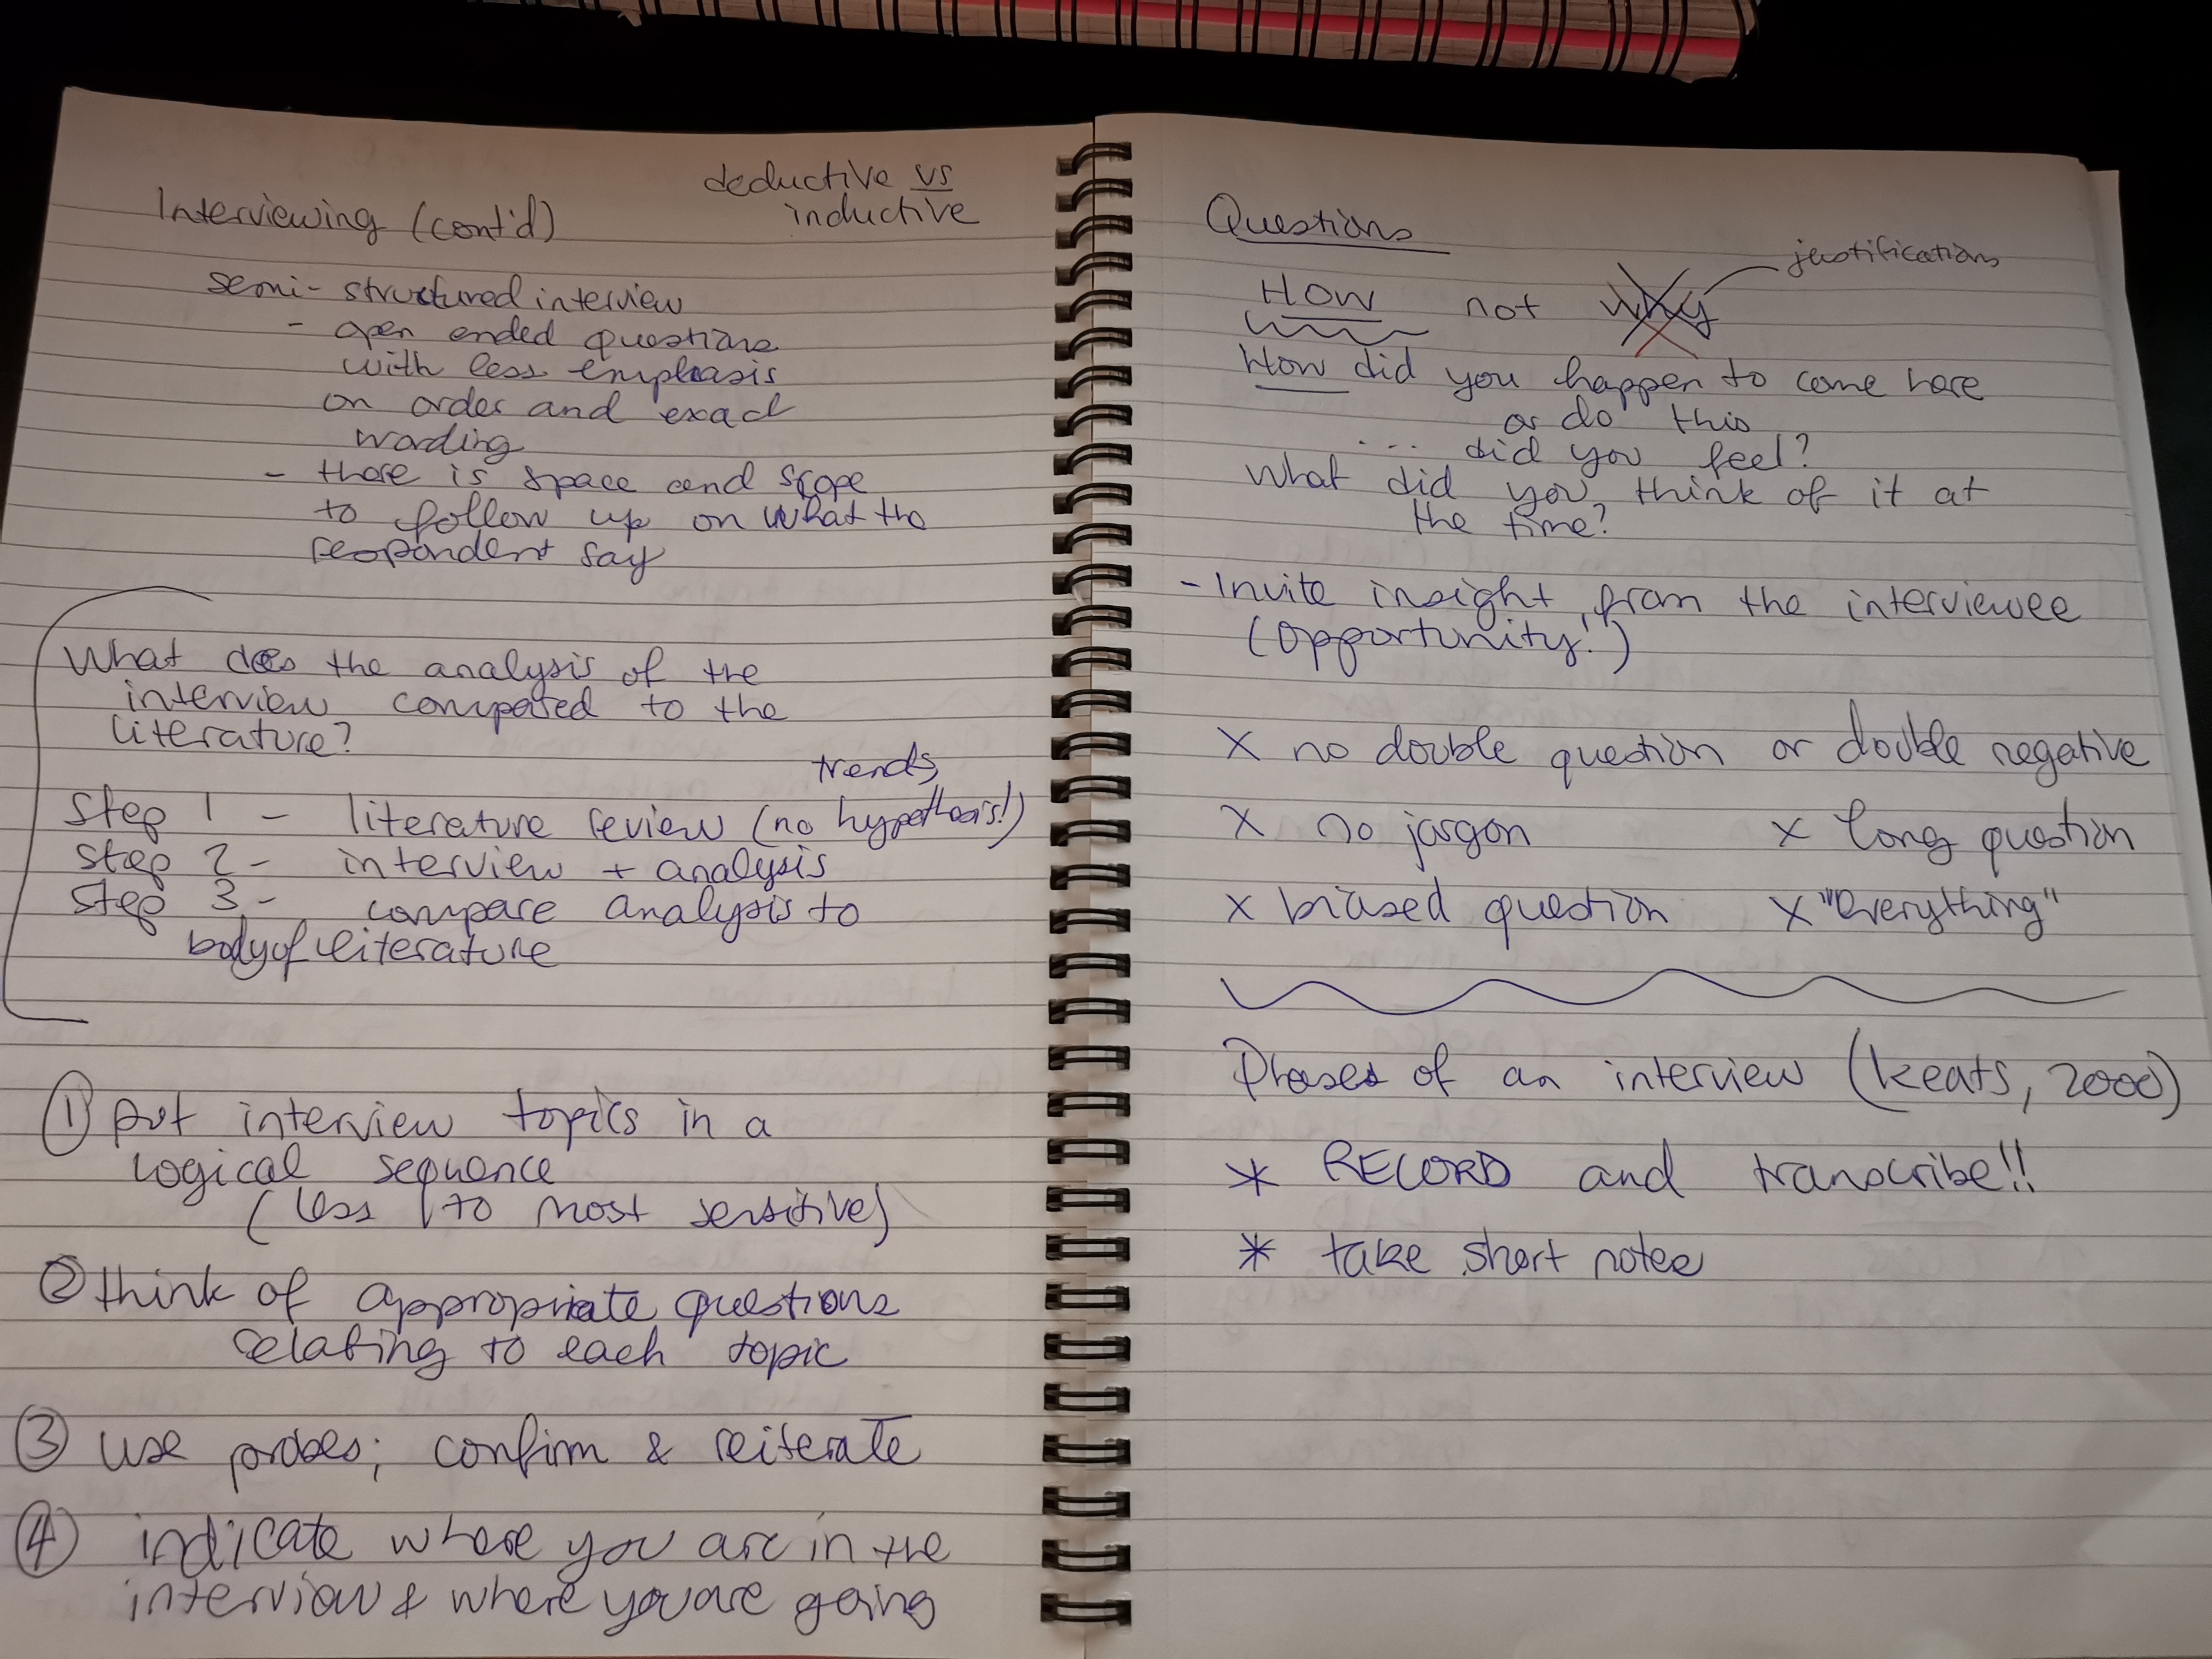 deductive vs
inductive
Interviewing (cont'd)
semi-structured interview
- open ended questions
with less emphasis
on order and exact
wording
- there is space and scope
to follow up on what the
respondent say
What does the analysis of the
interview compared to the
literature?
trends,
Step 1 - literature review (no hypothesis!)
Step 2 - interview + analysis
Step 3 - compare analysis to
body of literature
① put interview topics in a
logical sequence
(less to most sensitive)
② think of appropriate questions
relating to each topic
③ use probes; confirm & reiterate
④ indicate where you are in the
interview & where you are going
Questions
justifications
How not why
How did you happen to come here
or do this
... did you feel?
What did you think of it at
the time?
- Invite insight from the interviewee
(opportunity!)
X no double question or double negative
X no jargon X long question
X biased question X "everything"
Phases of an interview (Keats, 2000)
* RECORD and transcribe!!
* take short notes